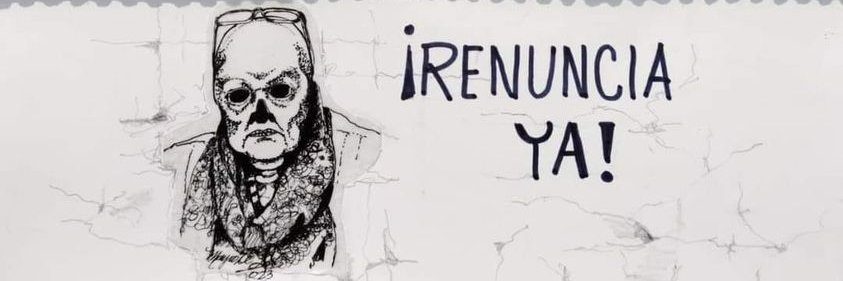 ¡RENUNCIA
YA!